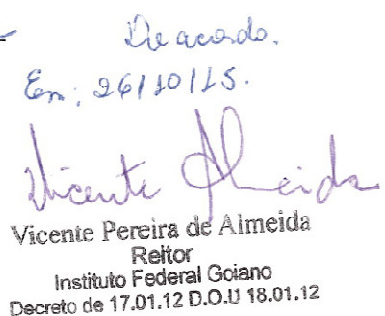 De acordo.
Em: 26/10/15.
Vicente Almeida
Vicente Pereira de Almeida
Reitor
Instituto Federal Goiano
Decreto de 17.01.12 D.O.U 18.01.12